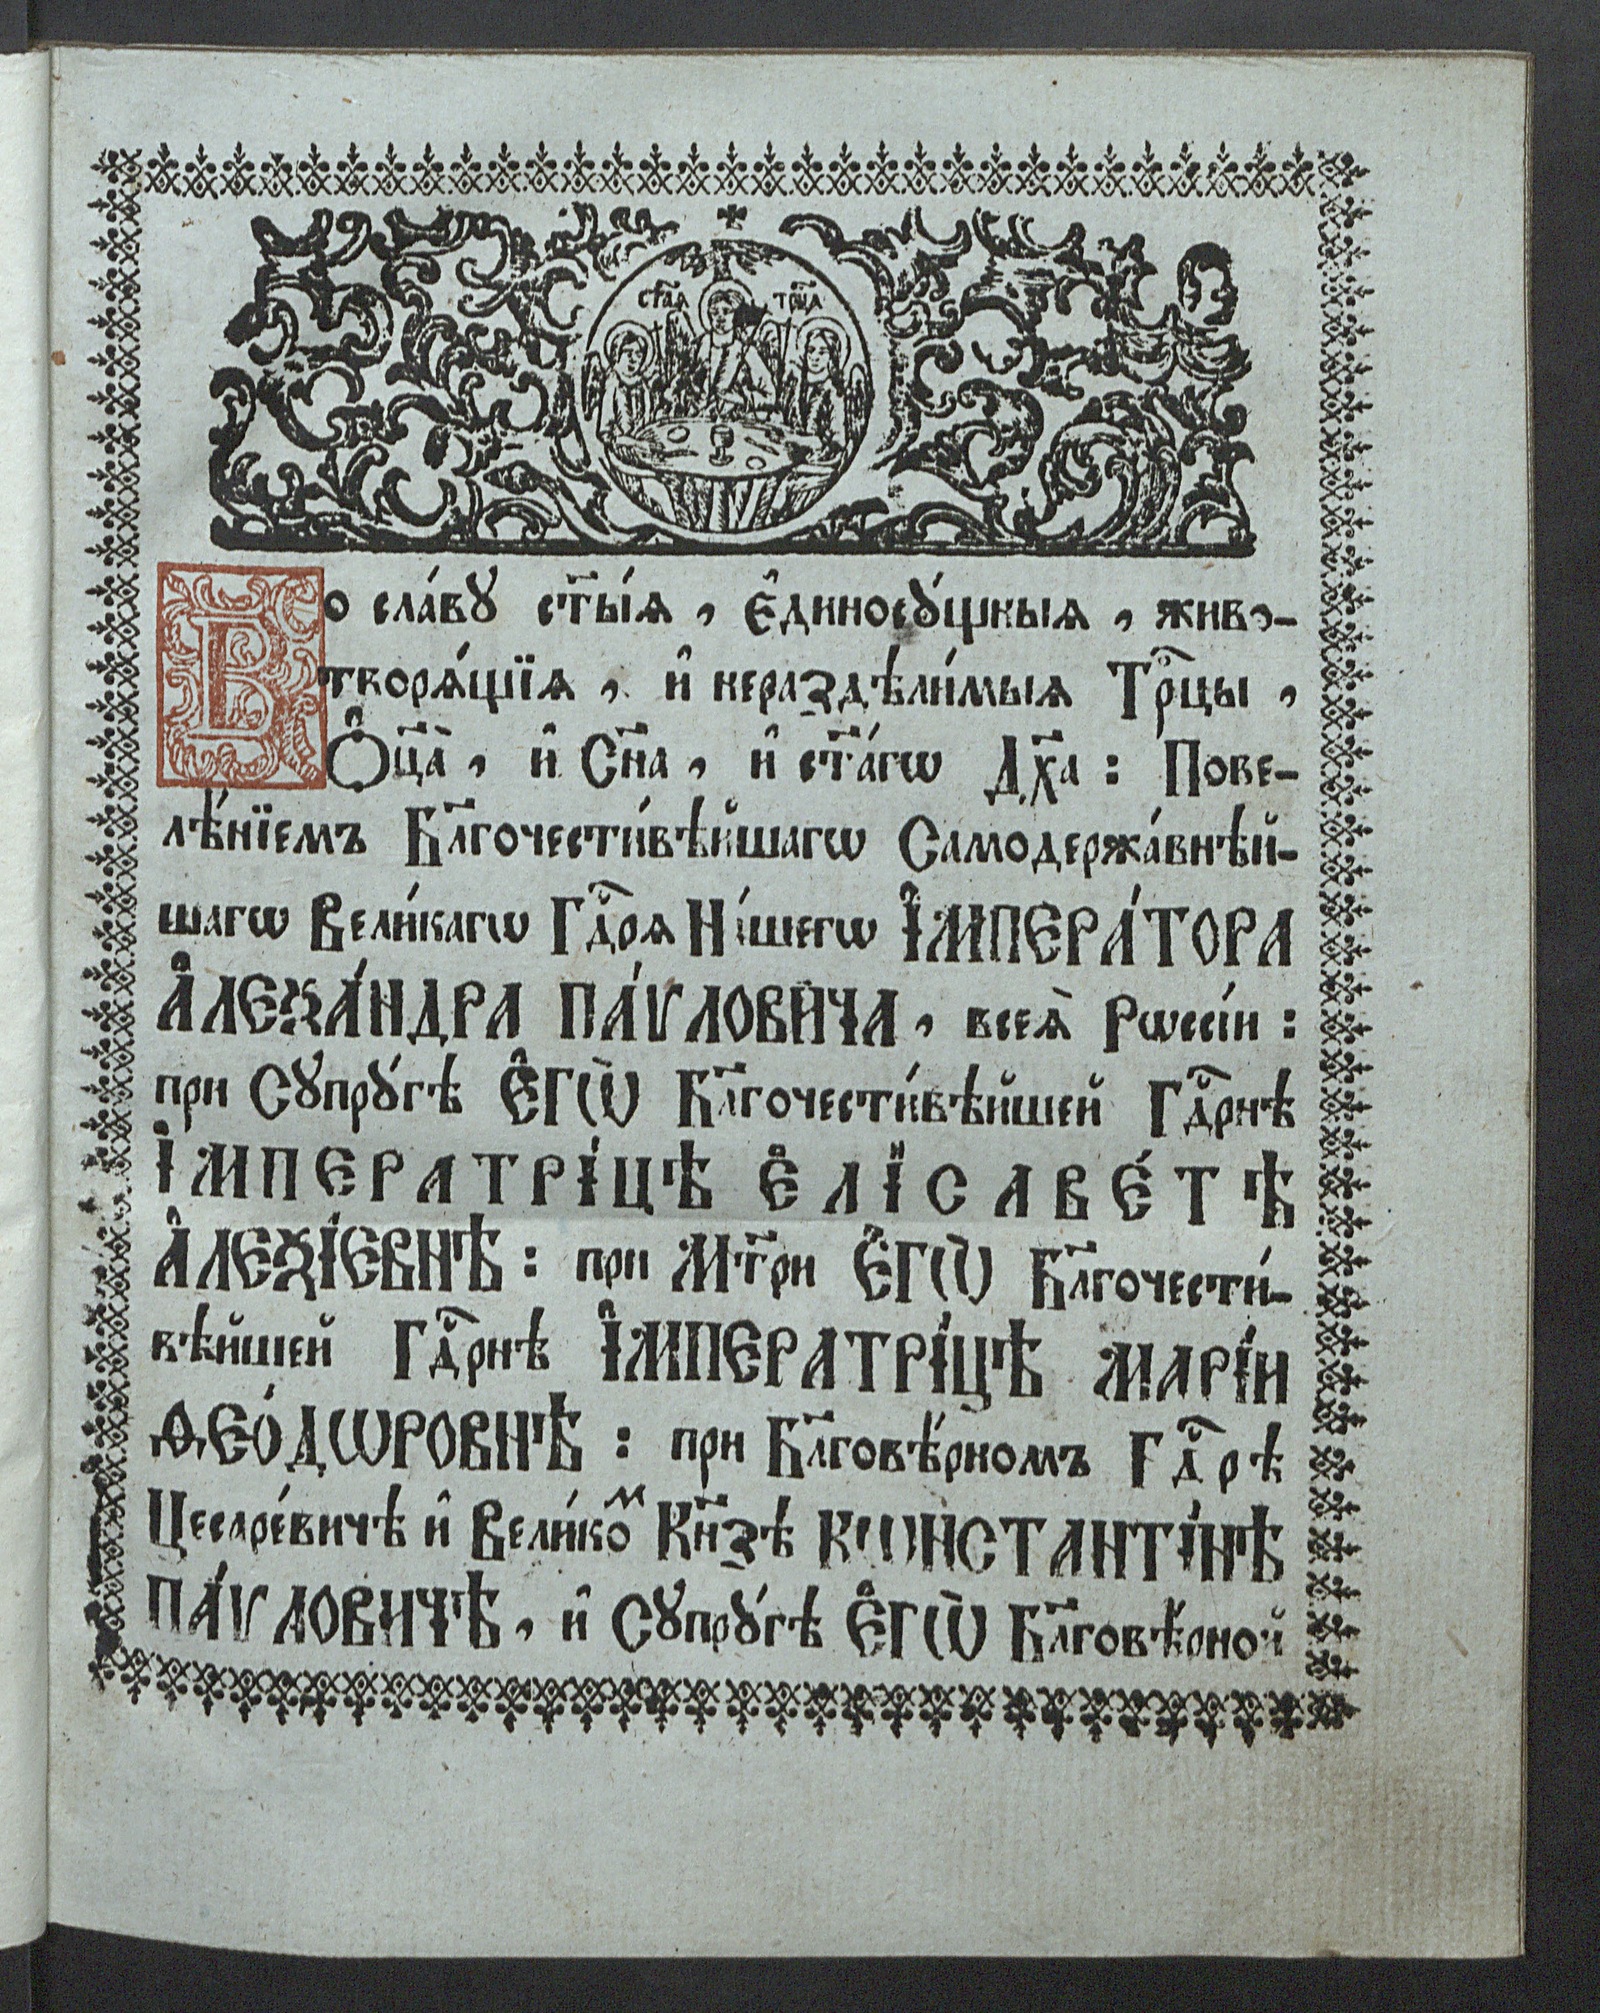 ст҃ая трⷪ҇ца
Во сла́вꙋ ст҃ы́ѧ , є҆диносꙋ́щныѧ , живо-
творѧ́щїѧ , и҆ нераздѣли́мыѧ Трⷪ҇цы ,
Ѻ҆ц҃а̀ , и҆ Сн҃а , и҆ ст҃а́гѡ Дх҃а : Пове-
лѣ́нїемъ Бл҃гочести́вѣйшагѡ Самодержа́внѣй-
шагѡ Вели́кагѡ Гдⷭ҇рѧ На́шегѡ І҆МПЕРА́ТОРА
А҆ЛЕѮА́НДРА ПА́ѴЛОВИЧА , всеѧ̀ Рѡссі́и :
при Сꙋпрꙋ́гѣ Є҆ГѠ̀ Бл҃гочести́вѣйшей Гдⷭ҇рнѣ
І҆МПЕРАТРІ́ЦѢ Є҆ЛІСАВЕ́ТѢ
А҆ЛЕѮІ́ЕВНѢ : при Мт҃ри Є҆ГѠ̀ Бл҃гочести́-
вѣйшей Гдⷭ҇рнѣ І҆МПЕРАТРІ́ЦѢ МАРІ́И
ѲЕО́ДѠРОВНѢ : при Бл҃говѣ́рномъ Гдⷭ҇рѣ
Цесаре́вичѣ и҆ Вели́коⷨ Кн҃зѣ КѠНСТАНТІ́НѢ
ПА́ѴЛОВИЧѢ , и҆ Сꙋпрꙋ́гѣ Є҆ГѠ̀ Бл҃говѣ́рной